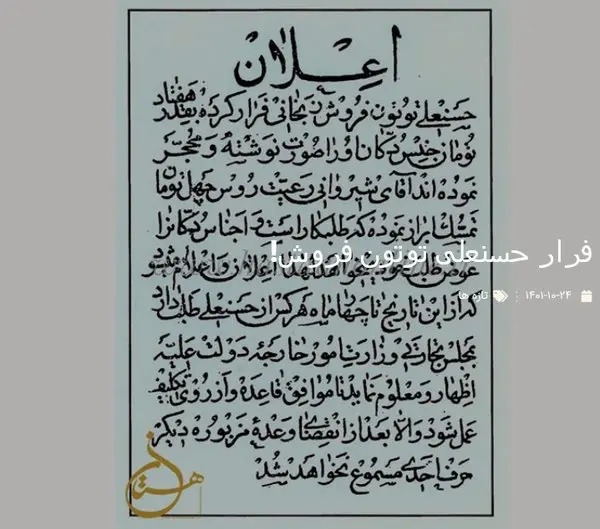 اعلان
حسنعلی توتون فروش زنجانی فرار کرده بقدر هفتاد
تومان جنس دکان او را صورت نوشته و محجر
نموده اند آقای شیروانی رعیت روس چهل تومان
تمسک ابراز نموده که طلبکار است و اجناس دکانرا
عوض طلب خود میخواهد لهذا اعلان و اعلام میشود
که از این تاریخ تا چهار ماه هر کس از حسنعلی طلب دارد
بمجلس تجارتی وزارت امور خارجه دولت علیه
اظهار و معلوم نماید تا موافق قاعده و از روی تکلیف
عمل شود والا بعد از انقضای وعده مزبوره دیگر
حرف احدی مسموع نخواهد شد
فرار حسنعلی توتون فروش!
۱۴۰۱-۱۰-۲۴ تازه ها